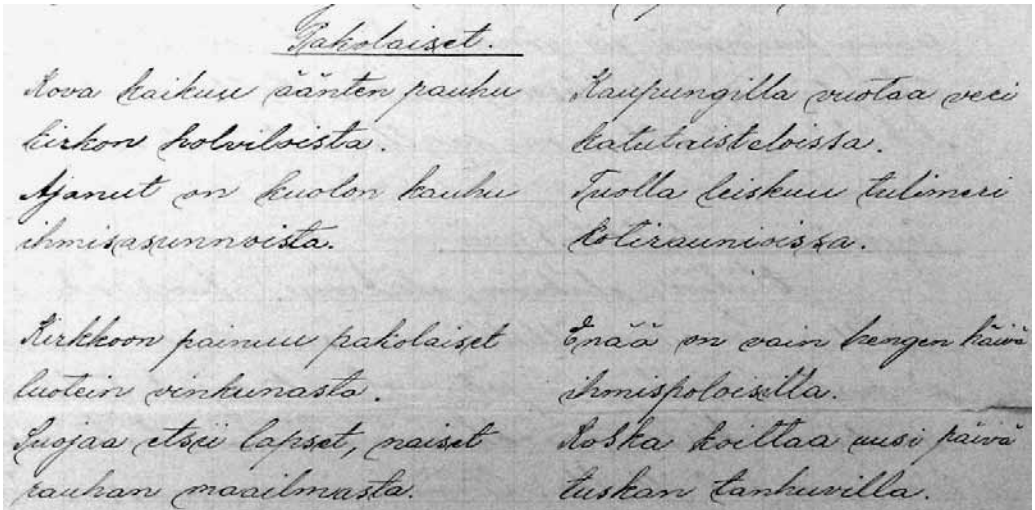 Pakolaiset.
Kova kaikuu äänten pauhu
kirkon holviloista.
Ajanut on kuolon kauhu
ihmisasunnoista.
Kirkkoon painuu pakolaiset
luotein vinkunasta.
Suojaa etsii lapset, naiset
rauhan maailmasta.
Kaupungilla vuotaa veri
katutaisteloissa.
Tuolla leiskuu tulimeri
kotiraunioissa.
Enää on vain hengen häivä
ihmispoloisilla.
Koska koittaa uusi päivä
tuskan tanhuvilla.